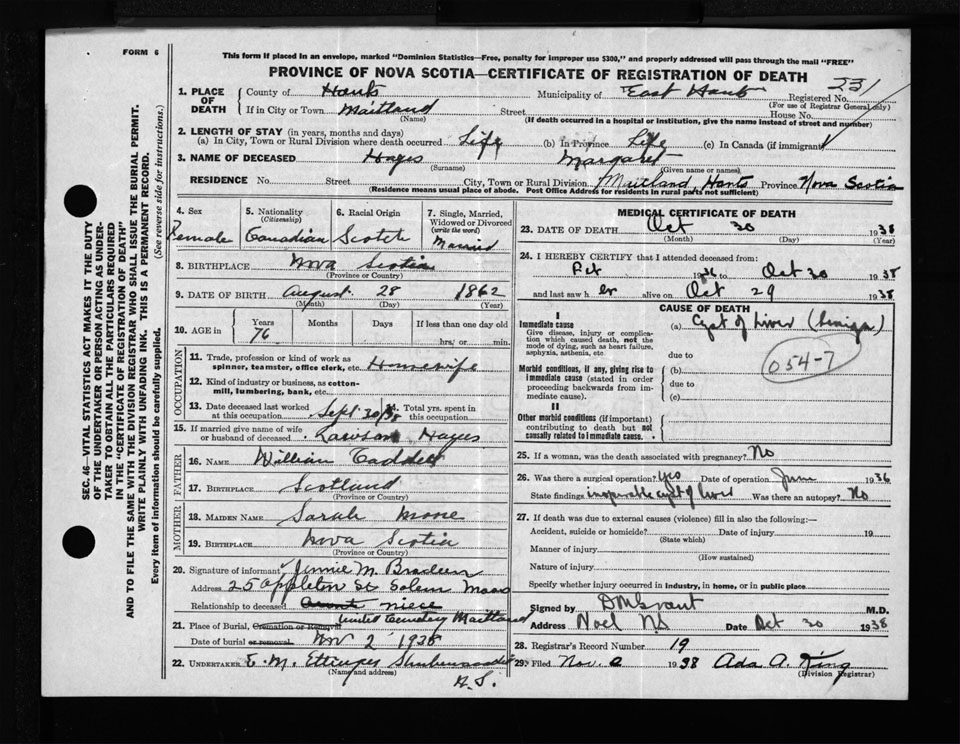 FORM 6
This form if placed in an envelope, marked "Dominion Statistics—Free, penalty for improper use $300," and properly addressed will pass through the mail "FREE"
PROVINCE OF NOVA SCOTIA—CERTIFICATE OF REGISTRATION OF DEATH
231
1. PLACE OF DEATH County of Hants Municipality of East Hants Registered No.
(For use of Registrar General only)
If in City or Town Maitland Street House No.
(Name) (If death occurred in a hospital or institution, give the name instead of street and number)
2. LENGTH OF STAY (in years, months and days)
(a) In City, Town or Rural Division where death occurred Life (b) In Province Life (c) In Canada (if immigrant)
3. NAME OF DECEASED Hayes Margaret
(Surname) (Given name or names)
RESIDENCE No. Street City, Town or Rural Division Maitland Hants Province Nova Scotia
(Residence means usual place of abode. Post Office Address for residents in rural parts not sufficient)
4. Sex Female
5. Nationality (Citizenship) Canadian
6. Racial Origin Scotch
7. Single, Married, Widowed or Divorced (write the word) Married
8. BIRTHPLACE Nova Scotia
(Province or Country)
9. DATE OF BIRTH August 28 1862
(Month) (Day) (Year)
10. AGE in Years Months Days If less than one day old
76 hrs. or min.
OCCUPATION
11. Trade, profession or kind of work as spinner, teamster, office clerk, etc. Housewife
12. Kind of industry or business, as cotton-mill, lumbering, bank, etc.
13. Date deceased last worked at this occupation Sept. 30/38 14. Total yrs. spent in this occupation
15. If married give name of wife or husband of deceased Lawson Hayes
FATHER
16. Name William Caddell
17. Birthplace Scotland
(Province or Country)
MOTHER
18. MAIDEN NAME Sarah Moore
19. BIRTHPLACE Nova Scotia
(Province or Country)
20. Signature of informant Jennie M.
Address 25 Appleton St Salem Mass
Relationship to deceased Aunt niece
21. Place of Burial, Cremation or Removal United Cemetery Maitland
Date of burial or removal Nov 2 1938
22. UNDERTAKER E. M. Ettinger Shubenacadie
(Name and address)
N.S.
MEDICAL CERTIFICATE OF DEATH
23. DATE OF DEATH Oct 30 1938
(Month) (Day) (Year)
24. I HEREBY CERTIFY that I attended deceased from:
1936 to Oct 30 1938
and last saw her alive on Oct 29 1938
CAUSE OF DEATH
I
Immediate cause
Give disease, injury or complication which caused death, not the mode of dying, such as heart failure, asphyxia, asthenia, etc
(a) Cyst of Liver (benign)
054-7
due to
Morbid conditions, if any, giving rise to immediate cause (stated in order proceeding backwards from immediate cause).
(b)
due to
(c)
II
Other morbid conditions (if important) contributing to death but not causally related to immediate cause.
25. If a woman, was the death associated with pregnancy? No
26. Was there a surgical operation? Yes Date of operation June 1936
State findings inoperable cyst of liver Was there an autopsy? No
27. If death was due to external causes (violence) fill in also the following:—
Accident, suicide or homicide? Date of injury 19
(State which)
Manner of injury
(How sustained)
Nature of injury
Specify whether injury occurred in industry, in home, or in public place
Signed by DMGrant M.D.
Address Noel NS Date Oct 30 1938
28. Registrar's Record Number 19
29. Filed Nov. 2 1938 Ada A. King
(Division Registrar)
SEC. 46—VITAL STATISTICS ACT MAKES IT THE DUTY
OF THE UNDERTAKER OR PERSON ACTING AS UNDER-
TAKER TO OBTAIN ALL THE PARTICULARS REQUIRED
IN THE "CERTIFICATE OF REGISTRATION OF DEATH"
AND TO FILE THE SAME WITH THE DIVISION REGISTRAR WHO SHALL ISSUE THE BURIAL PERMIT.
WRITE PLAINLY WITH UNFADING INK. THIS IS A PERMANENT RECORD.
Every item of information should be carefully supplied. (See reverse side for instructions.)